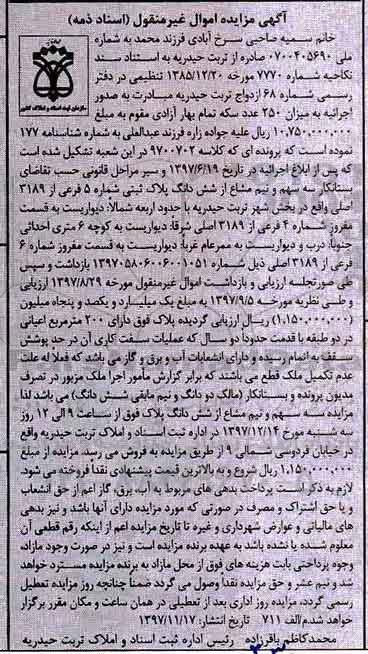 آگهی مزایده اموال غیرمنقول (اسناد ذمه)
خانم سمیه صاحبی سرخ آبادی فرزند محمد به شماره
ملی ۰۷۰۰۴۰۵۶۹۰ صادره از تربت حیدریه به استناد سند
نکاحیه شماره ۷۷۷۰ مورخه ۱۳۸۵/۱۲/۲۰ تنظیمی در دفتر
رسمی شماره ۶۸ ازدواج تربت حیدریه مبادرت به صدور
اجرائیه به میزان ۲۵۰ عدد سکه تمام بهار آزادی مقوم به مبلغ
۱۰,۷۵۰,۰۰۰,۰۰۰ ریال علیه جواده زاره فرزند عبدالعلی به شماره شناسنامه ۱۷۷
نموده است که پرونده ای که کلاسه ۹۷۰۰۷۰۲ در این شعبه تشکیل شده است
که پس از ابلاغ اجرائیه در تاریخ ۱۳۹۷/۶/۱۹ و سیر مراحل قانونی حسب تقاضای
بستانکار سه سهم و نیم مشاع از شش دانگ پلاک ثبتی شماره ۵ فرعی از ۳۱۸۹
اصلی واقع در بخش شهر تربت حیدریه با حدود اربعه شمالا: دیواریست به قسمت
مفروز شماره ۴ فرعی از ۳۱۸۹ اصلی شرقا: دیواریست به کوچه ۶ متری احداثی
جنوبا: درب و دیواریست به ممرعام غربا: دیواریست به قسمت مفروز شماره ۶
فرعی از ۳۱۸۹ اصلی ذیل شماره ۱۳۹۷۰۵۸۰۶۰۰۶۰۰۱۰۵۱ بازداشت و سپس
طی صورتجلسه ارزیابی و بازداشت اموال غیرمنقول مورخه ۱۳۹۷/۸/۲۹ ارزیابی
و طی نظریه مورخه ۱۳۹۷/۹/۵ به مبلغ یک میلیارد و یکصد و پنجاه میلیون
(۱,۱۵۰,۰۰۰,۰۰۰) ریال ارزیابی گردیده پلاک فوق دارای ۲۰۰ مترمربع اعیانی
در دو طبقه با قدمت حدودا دو سال که عملیات سفت کاری آن در حد پوشش
سقف به اتمام رسیده و دارای انشعابات آب و برق و گاز می باشد که فعلا له علت
عدم تکمیل ملک قطع می باشند که برابر گزارش مأمور اجرا ملک مزبور در تصرف
مدیون پرونده و بستانکار (مالک دو دانگ و نیم مابقی شش دانگ) می باشد لذا
مزایده سه سهم و نیم مشاع از شش دانگ پلاک فوق از ساعت ۹ الی ۱۲ روز
سه شنبه مورخ ۱۳۹۷/۱۲/۱۴ در اداره ثبت اسناد و املاک تربت حیدریه واقع
در خیابان فردوسی شمالی ۹ از طریق مزایده به فروش می رسد. مزایده از مبلغ
۱,۱۵۰,۰۰۰,۰۰۰ ریال شروع و به بالاترین قیمت پیشنهادی نقدا فروخته می شود.
لازم به ذکر است پرداخت بدهی های مربوط به آب، برق، گاز اعم از حق انشعاب
و یا حق اشتراک و مصرف در صورتی که مورد مزایده دارای آنها باشد و نیز بدهی
های مالیاتی و عوارض شهرداری و غیره تا تاریخ مزایده اعم از اینکه رقم قطعی آن
معلوم شده یا نشده باشد به عهده برنده مزایده است و نیز در صورت وجود مازاد،
وجوه پرداختی بابت هزینه های فوق از محل مازاد به برنده مزایده مسترد خواهد
شد و نیم عشر و حق مزایده نقدا وصول می گردد ضمنا چنانچه روز مزایده تعطیل
رسمی گردد، مزایده روز اداری بعد از تعطیلی در همان ساعت و مکان مقرر برگزار
خواهد شد.م/الف ۷۱۱ تاریخ انتشار: ۱۳۹۷/۱۱/۱۷
محمدکاظم باقرزاده رئیس اداره ثبت اسناد و املاک تربت حیدریه